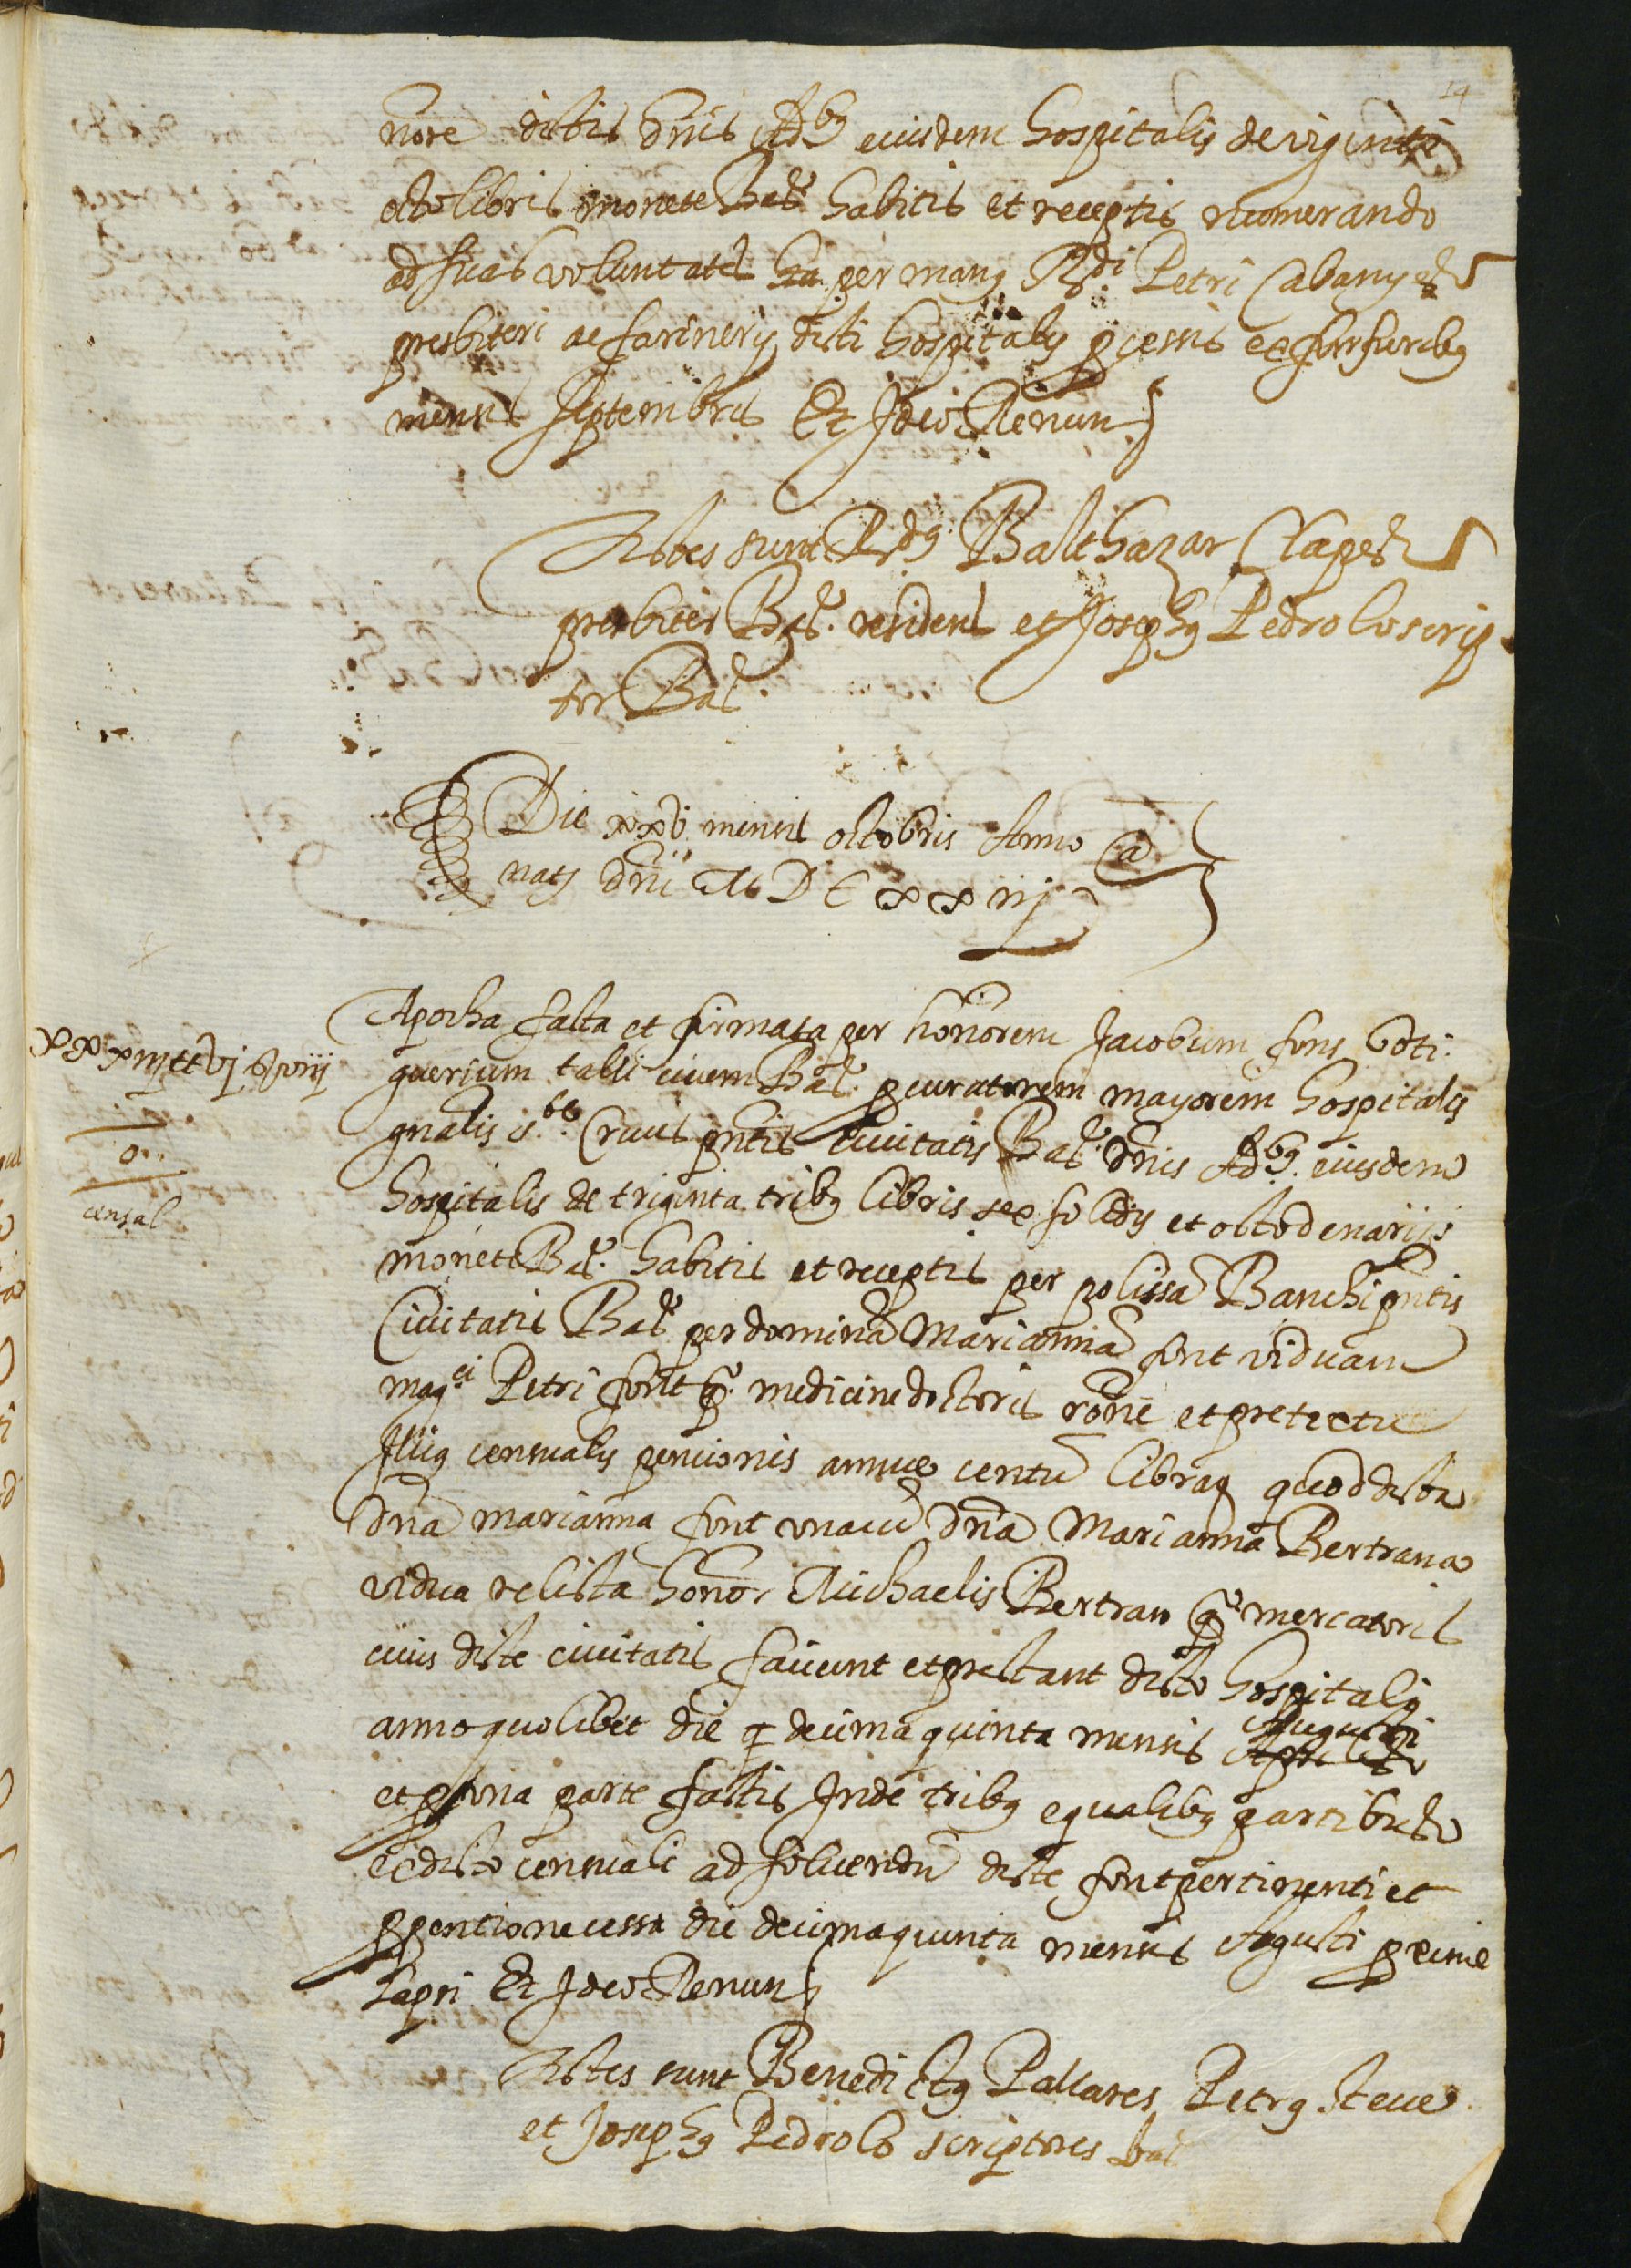 14
nore dictis dnis Adbus eiusdem hospitalis de viginti
octo libris monete Bar habitis et receptis numerando
ad suas voluntates per manus Rdi Petri Cabanyes
presbiteri ac farinerii dicti hospitalis processis ex furfuribus
mensis septembris Et Ideo Renun
Testes sunt Rdus Balthazar Claper
presbiter Bar. residens et Josephus Pedrolo scrip
tor Bar.
Die xxv mensis octobris Anno a
natj dni M D C xx iij
Apocha facta et firmata per honorem Jacobum fons boti
guerium talli civem Bar. procuratorem mayorem hospitalis
gnalis ste Crucis pntis Civitatis Bar. dnis Adbus eiusdem
xxxiij ll vj s viij
o
censal
hospitalis de triginta tribus libris sex solidis et octo denariis
monete Bar. habitis et receptis per polissa Banchi pntis
Civitatis Bar. per domina Marianna font viduam
magci Petri font q. medicine doctoris rone et pretextu
Illius censualis pencionis annue centu libraru quod dicta
dna marianna font unacu dna Marianna Bertrana
vidua relicta honor Michaelis Bertran q. mercatoris
civis dicte civitatis faciunt et prestant dicto hospitali
anno quolibet die decima quinta mensis Augusti Aprilis
et pro una parte factis Inde tribus equalibus partibus
ex dicto censuali ad solvendu dicte font pertinenti et
pro pentione cessa die decima quinta mensis Agusti proxime
lapsi Et Ideo Renun
Testes sunt Benedictus Pallares Petrus Steve
et Josephus Pedrolo scriptores bar